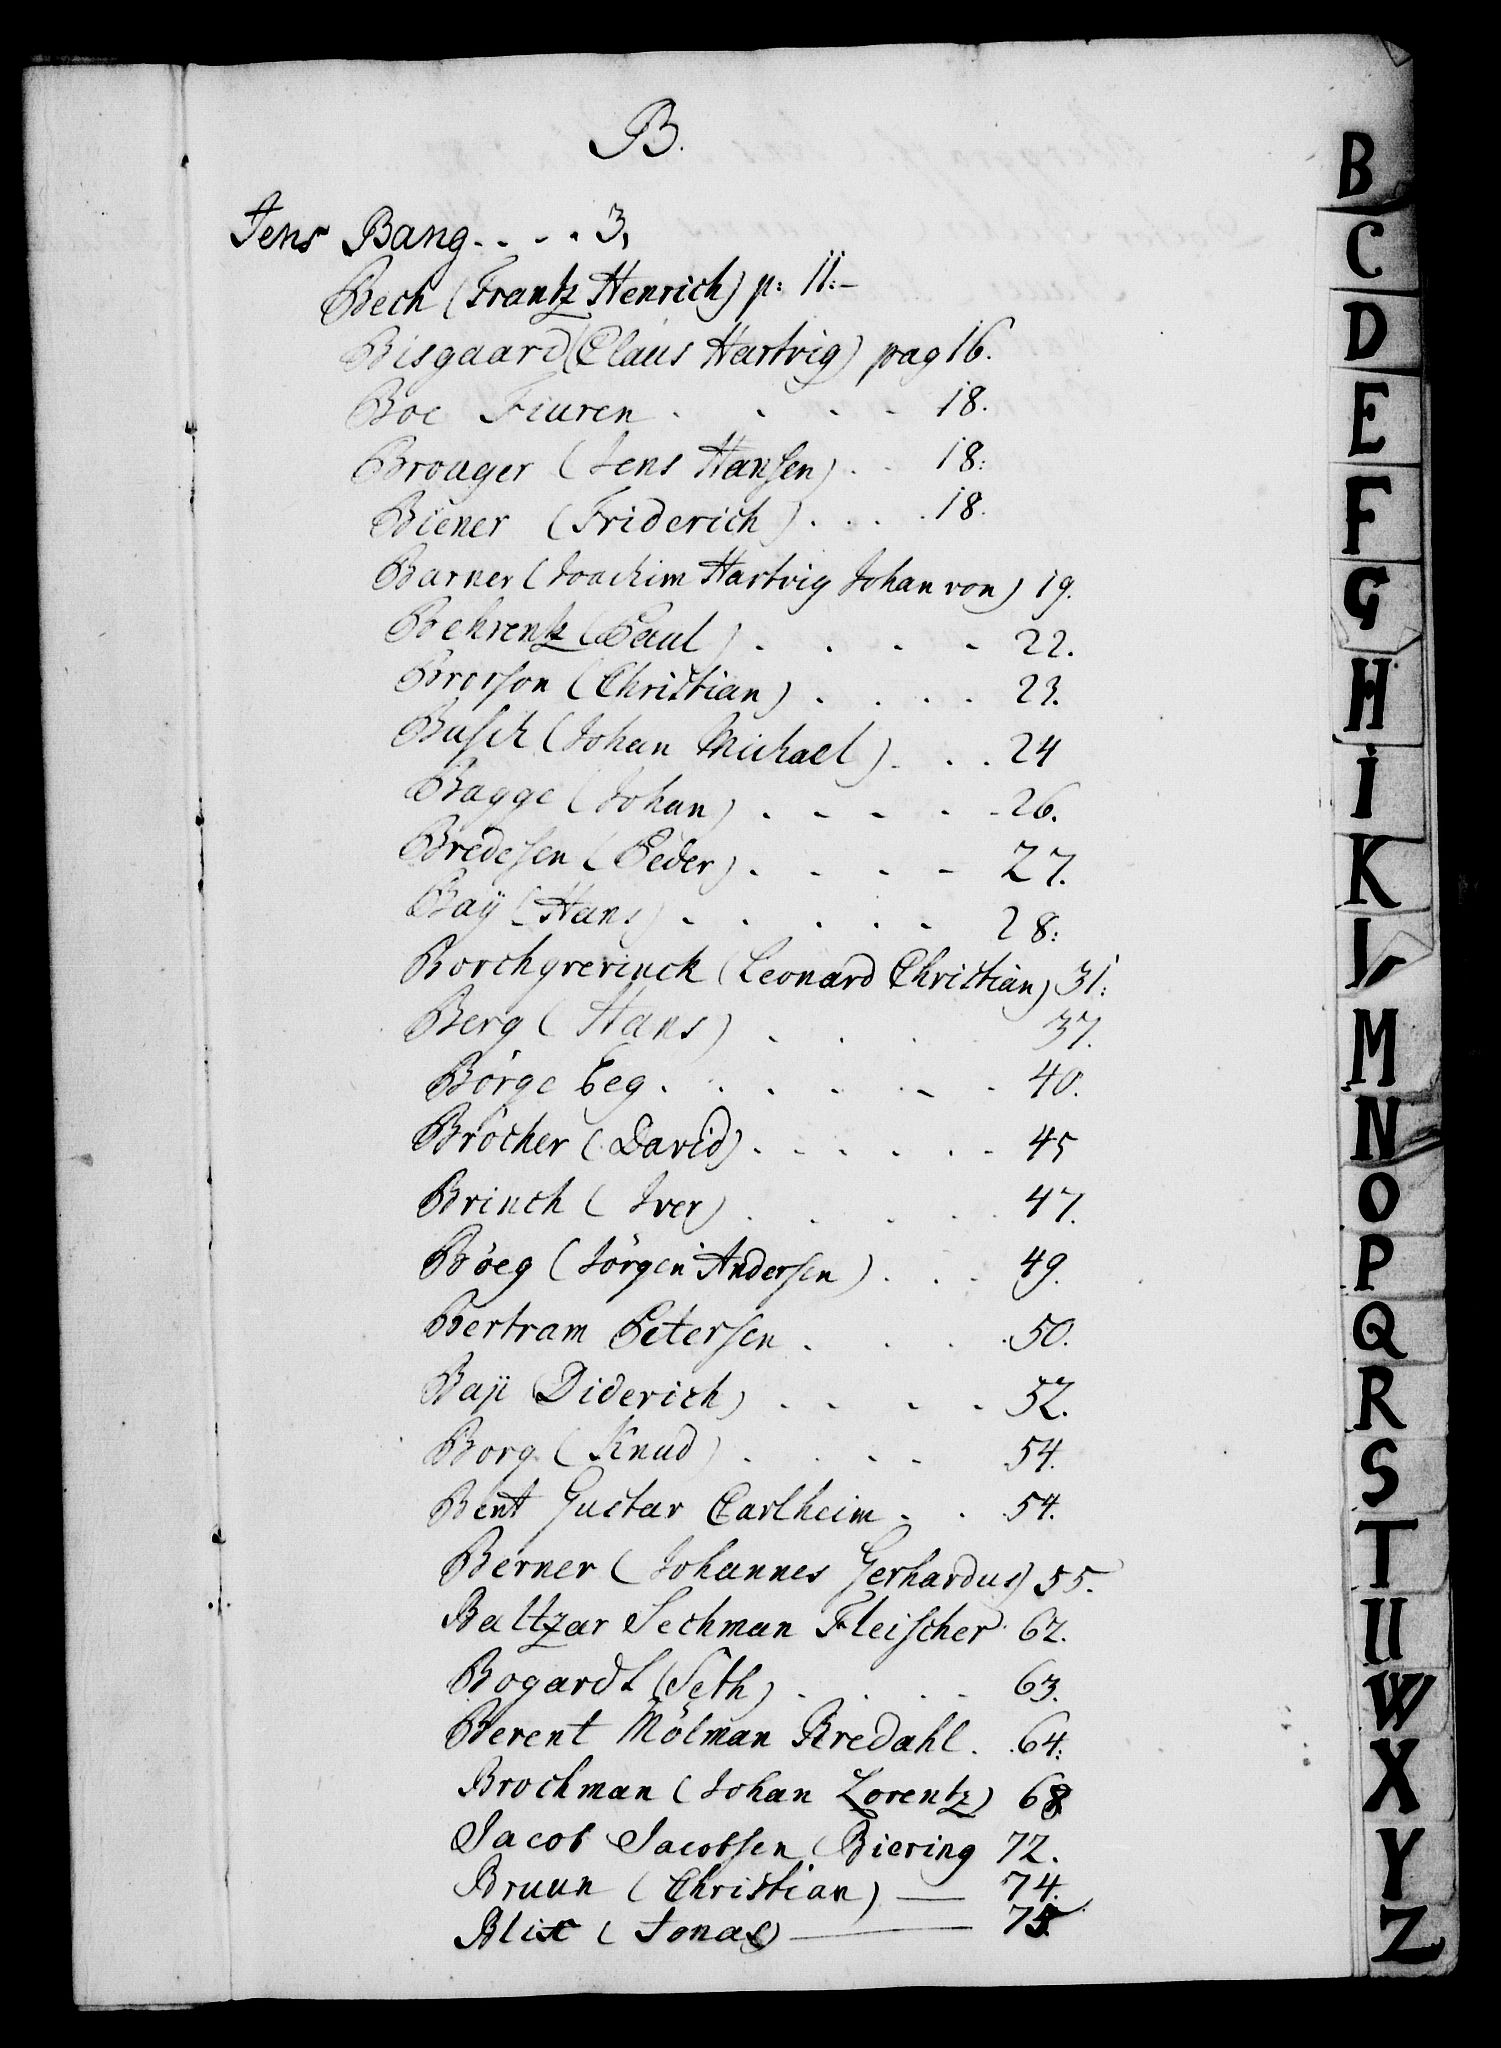 B.
Jens Bang. . . . 3,
Bech (Frantz Henrich) p: 11:-
Bisgaard (Claus Hartvig) pag 16.
Boe Fiuren . . . - 18.
Brouger (Jens Hansen) . . 18:
Biener (Friderich) . . . . 18.
Barner (Joachim Hartvig Johan von) 19.
Behrentz (Paul) . . . - 22.
Brorson (Christian) . . . . 23.
Busch (Johan Michael) . . . 24
Bagge (Johan) . - - . - 26.
Bredesen (Peder) . - - - 27.
Baÿ (Hans) - . . . - 28:
Borchgrevinck (Leonard Christian) 31:
Berg (Hans) . . . 37.
Börge Eeg . . . . - . 40.
Bröcher (David) . . . . . - 45
Brinch (Iver) . . . . . 47.
Böeg (Jörgen Andersen) . . . 49.
Bertram Petersen . . . . 50.
Baÿ (Diderich) . - - - 52.
Borg (Knud) . . . - 54.
Bent Gustav Carlheim . . . 54.
Berner (Johannes Gerhardus) 55.
Baltzar Sechman Fleischer 62.
Bogardt (Seth) . . . - 63.
Berent Mölman Bredahl . . 64:
Brochman (Johan Lorentz) 68
Jacob Jacobsen Biering 72.
Bruun (Christian) — 74.
Blix (Jonas) — 75.
B
C
D
E
F
G
H
I
K
L
M
N
O
P
Q
R
S
T
U
W
X
Y
Z